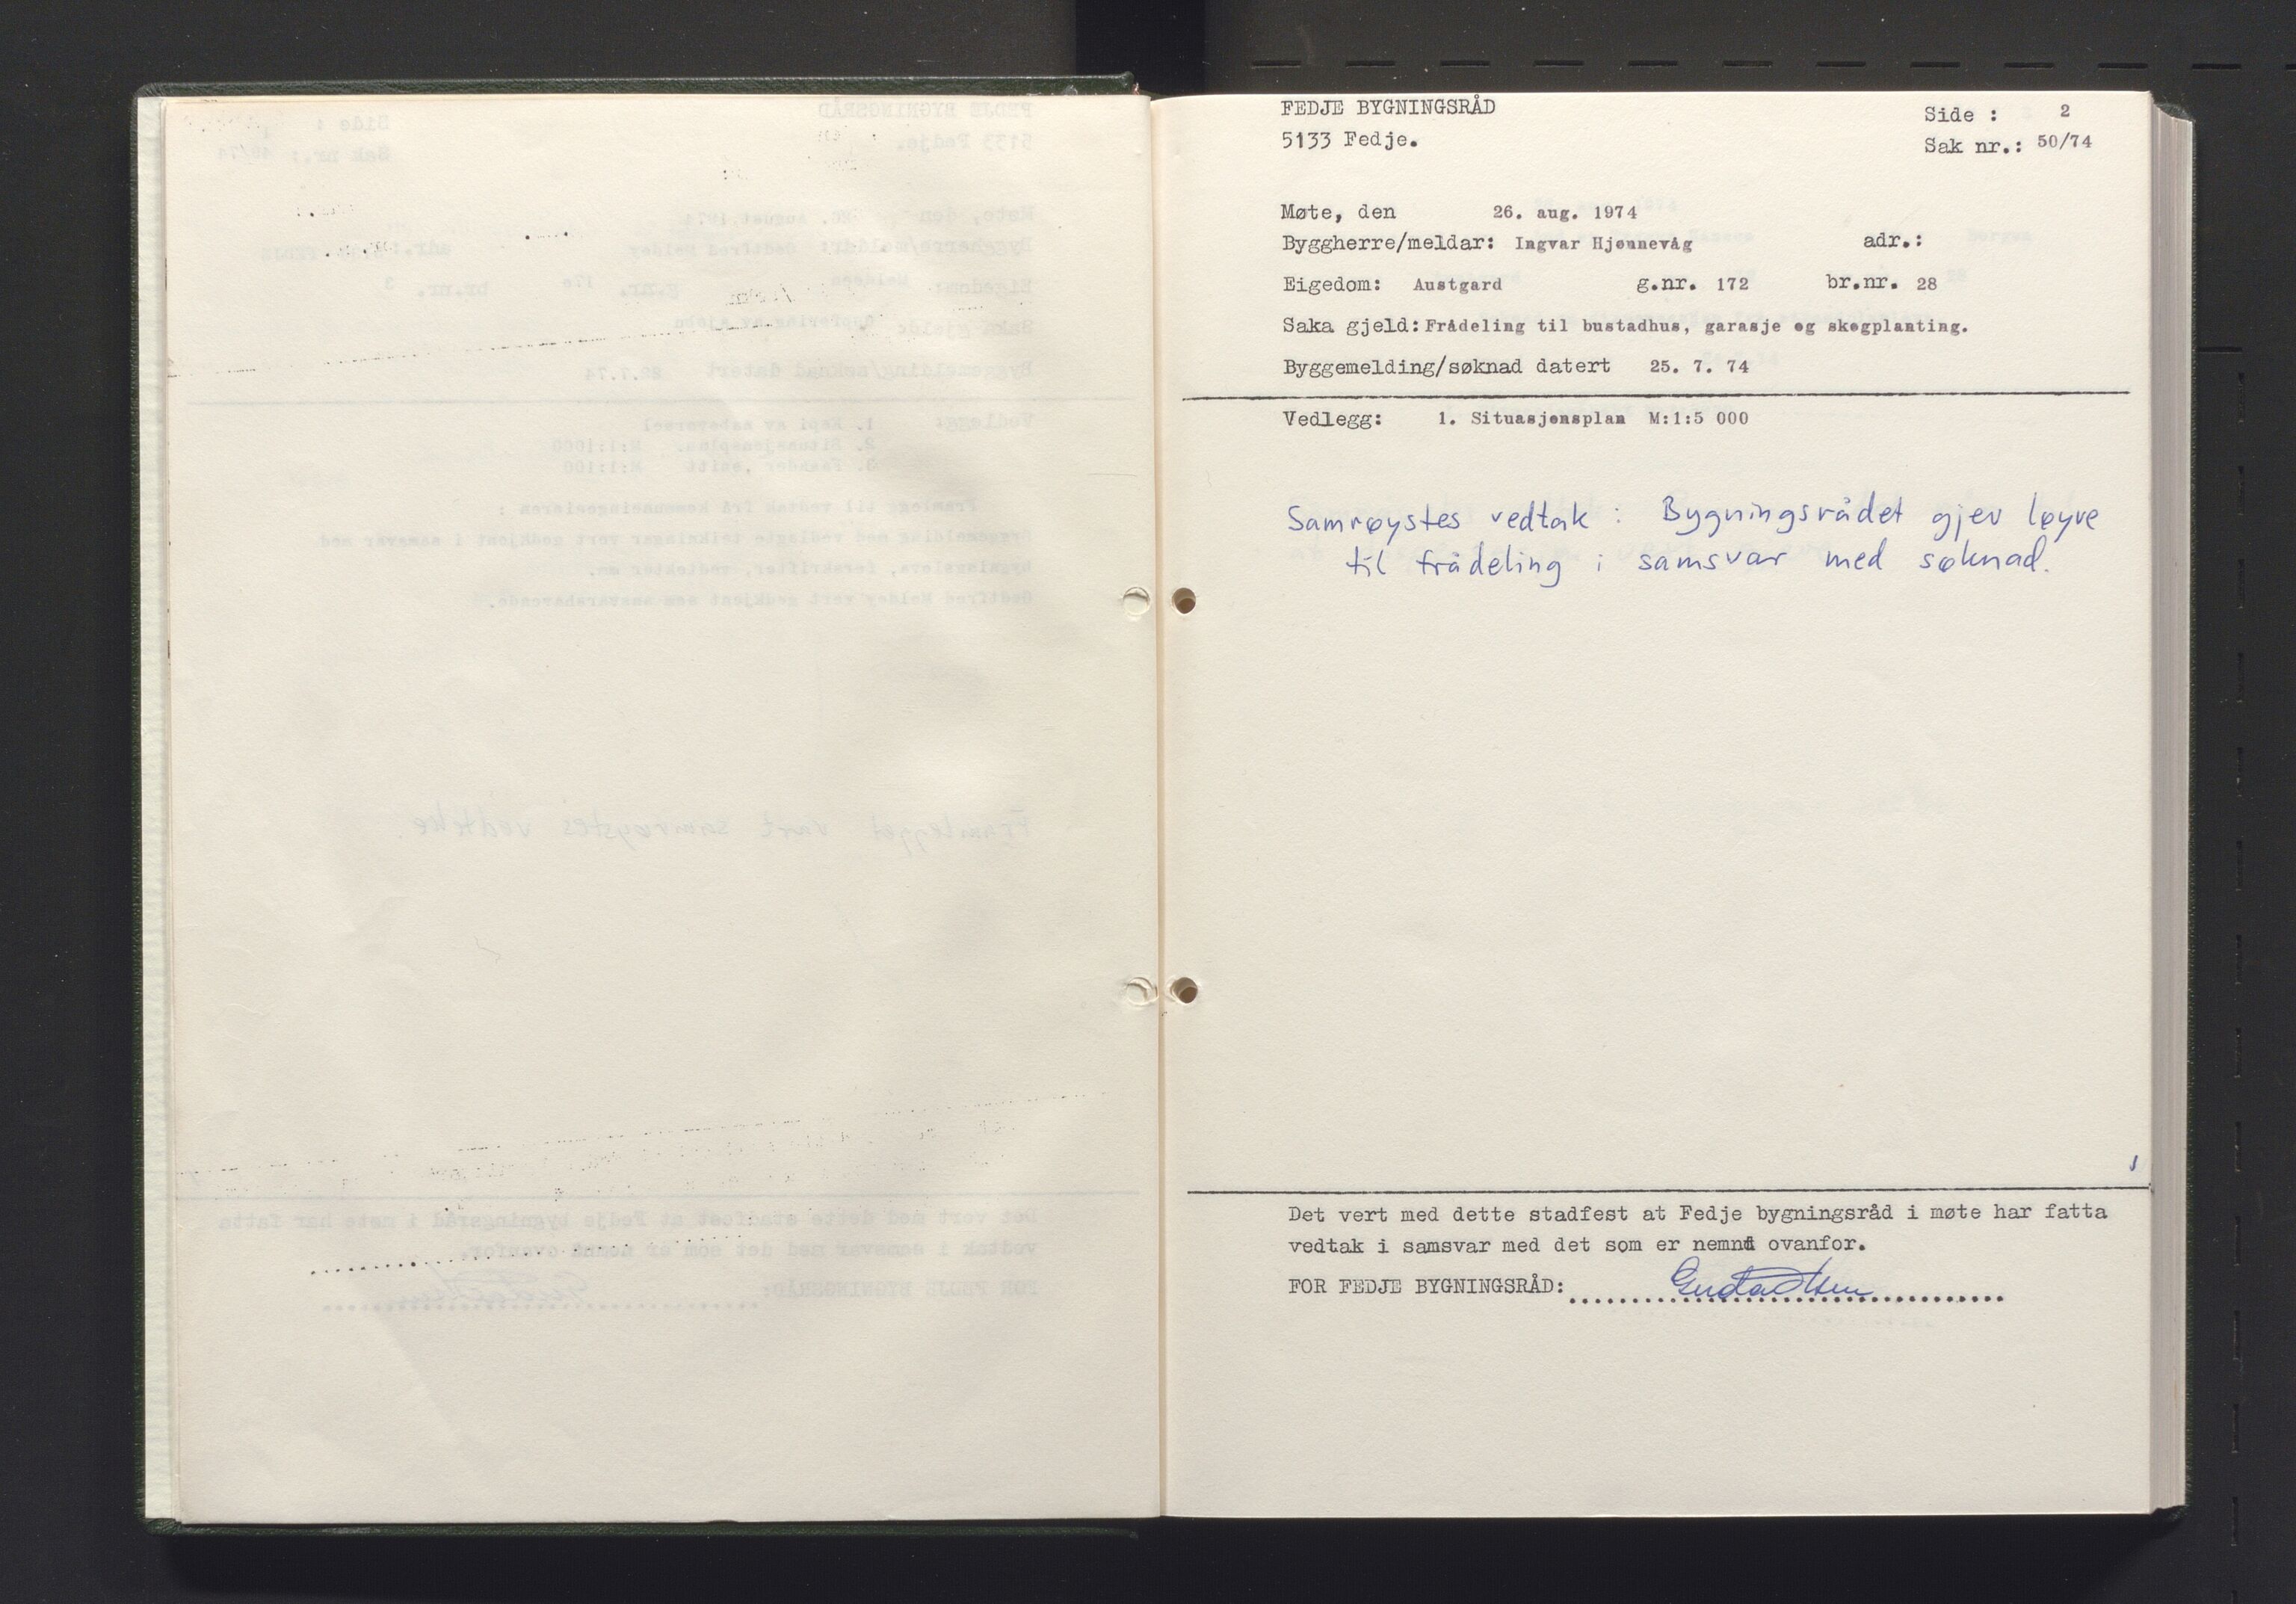 FEDJE BYGNINGSRÅD
5133 Fedje.
Side : 2
Sak nr.: 50/74
Møte, den 26. aug. 1974
Byggherre/meldar: Ingvar Hjønnevåg adr.:
Eigedom: Austgard g.nr. 172 br.nr. 28
Saka gjeld: Frådeling til bustadhus, garasje og skogplanting.
Byggemelding/søknad datert 25. 7. 74
Vedlegg: 1. Situasjonsplan M:1:5 000
Samrøystes vedtak : Bygningsrådet gjev løyve
til frådeling i samsvar med søknad.
Det vert med dette stadfest at Fedje bygningsråd i møte har fatta
vedtak i samsvar med det som er nemnt ovanfor.
FOR FEDJE BYGNINGSRÅD: